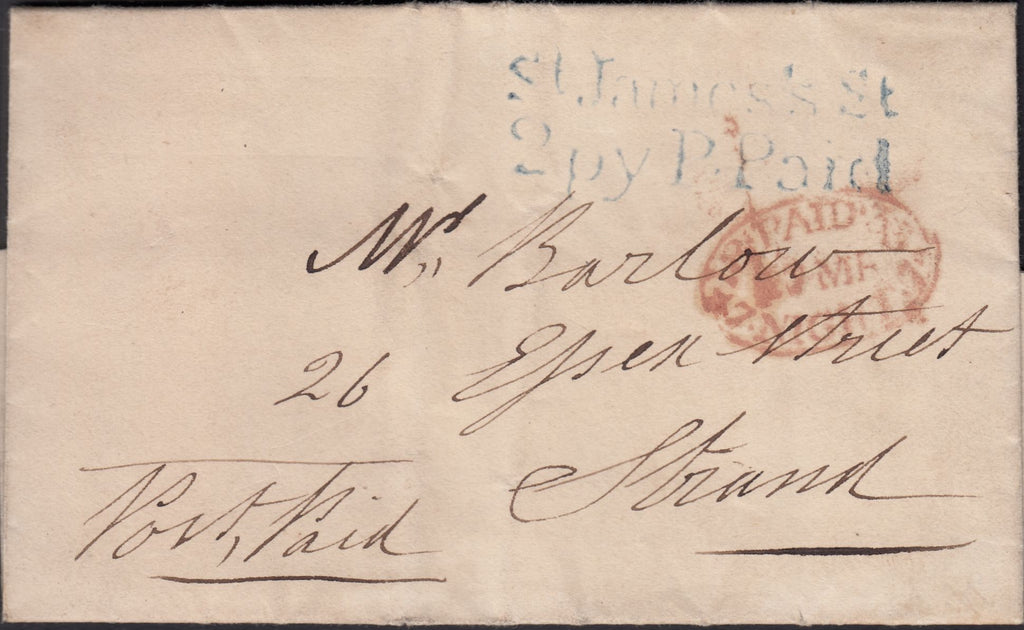 St James's St
2py P. Paid
PAID
Mr,, Barlow
26 Essex Street
Strand
Post, Paid